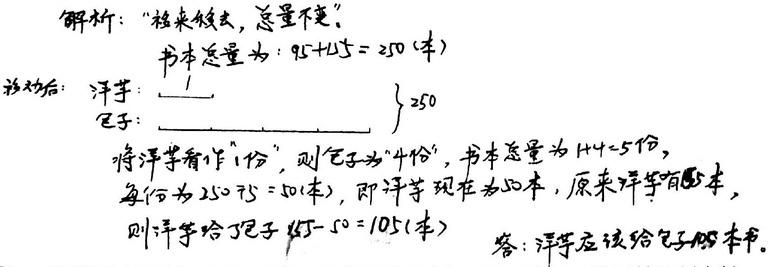 解析："移来移去，总量不变"。
书本总量为：95+155=250（本）
移动后：洋芋：1
包子：
}250
将洋芋看作"1份"，则包子为"4份"，书本总量为1+4=5份，
每份为250÷5=50（本），即洋芋现在为50本，原来洋芋有155本，
则洋芋给了包子155-50=105（本）
答：洋芋应该给包子105本书。